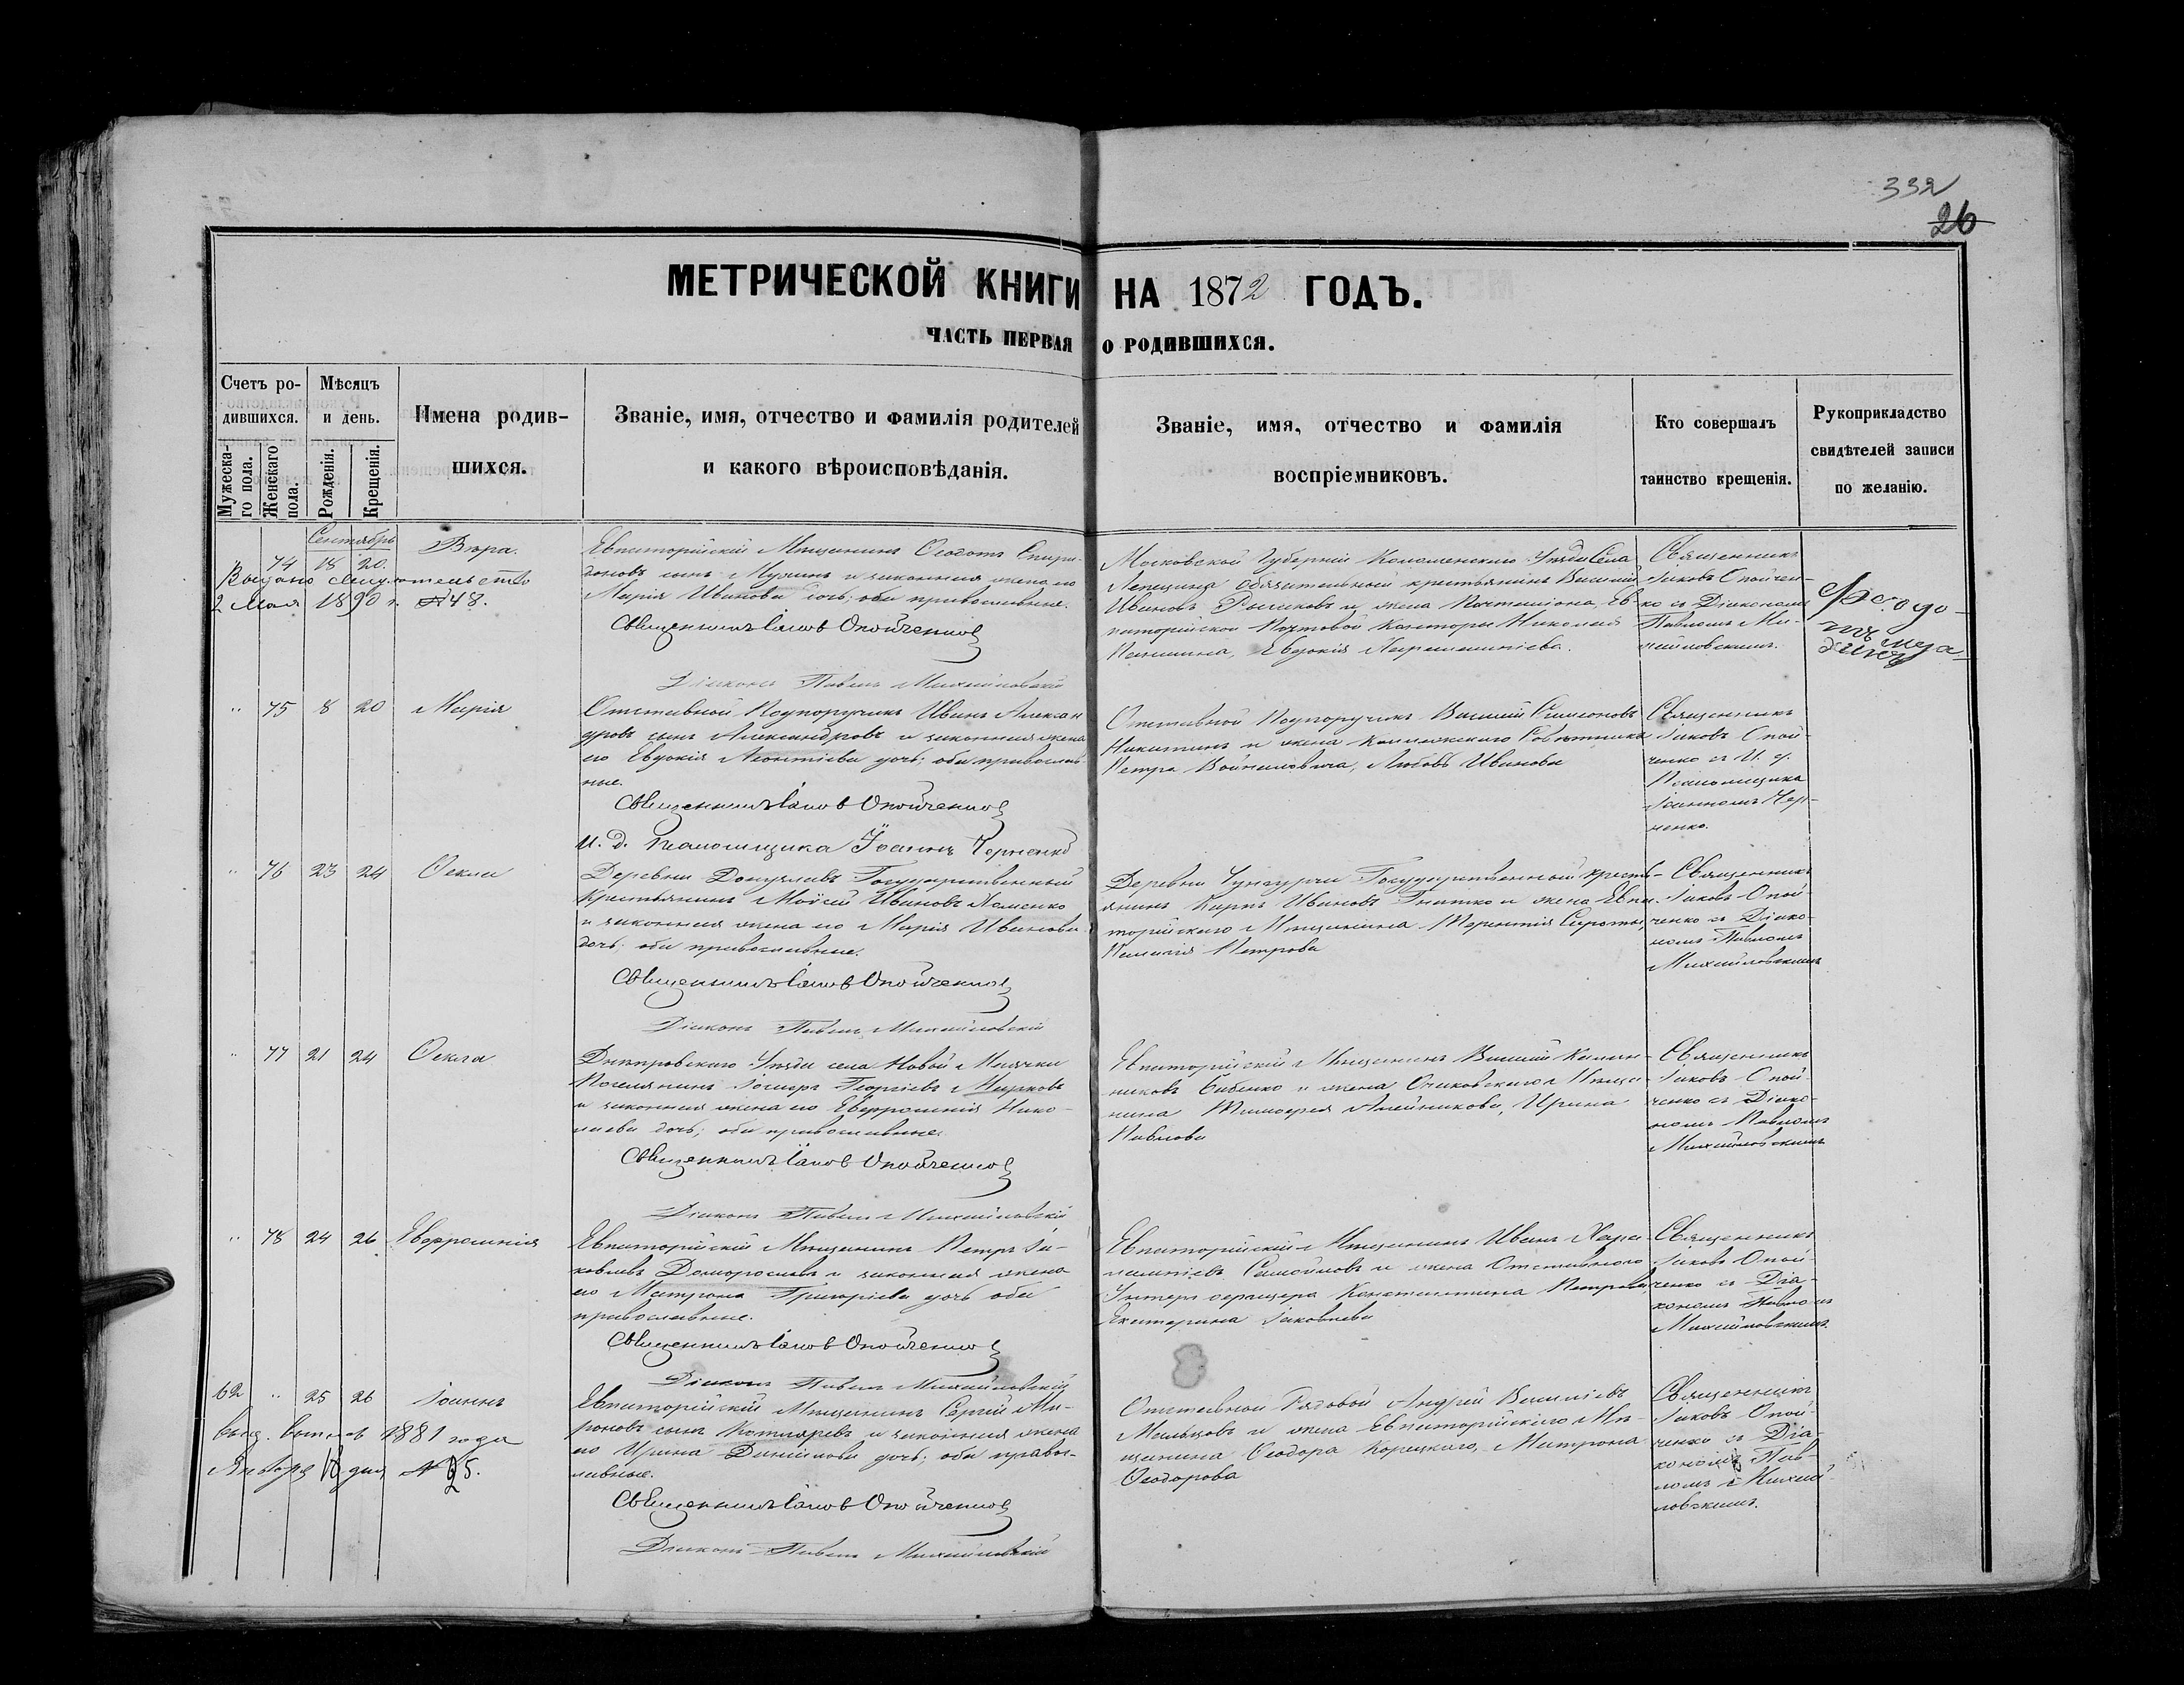 332
26
МЕТРИЧЕСКОЙ КНИГИ НА 1872 ГОДЪ.
ЧАСТЬ ПЕРВАЯ О РОДИВШИХСЯ.
Счетъ ро-
дившихся.
Мужеска-
го пола.
Женскаго
пола.
Мѣсяцъ
и день.
Рожденія.
Крещенія.
Имена родив-
шихся.
Званіе, имя, отчество и фамилія родителей
и какого вѣроисповѣданія.
Званіе, имя, отчество и фамилія
воспріемниковъ.
Кто совершалъ
таинство крещенія.
Рукоприкладство
свидѣтелей записи
по желанію.
Сентябрь
74 18 20. Вѣра.
Выдано свидѣтельство
2 Мая 1890 г. №48.
Евпаторійскій Мѣщанинъ Ѳеодотъ Спири-
доновъ сынъ и законная жена его
Марія Иванова дочь; оба православные.
Священникъ Іаковъ Опойченко
Діаконъ Павелъ Михайловскій
Московской Губерніи Коломенскаго Уѣзда Села
крестьянинъ Василій
Ивановъ и жена Почталіона Ев-
паторійской Почтовой Конторы Николая
Евдокія Харлампіева.
Священникъ
Іаковъ Опойчен-
ко съ Діакономъ
Павломъ Ми-
хайловскимъ.
75 8 20 Марія
Отставной Подпоручикъ Иванъ Алексан
дровъ сынъ Александровъ и законная жена
его Евдокія Леонтіева дочь; оба православ-
ные.
Священникъ Іаковъ Опойченко
И. д. Псаломщика Іоаннъ Черненко
Отставной Подпоручикъ Василій Симеоновъ
Никитинъ и жена Совѣтника
Петра Войниловича, Любовь Иванова
Священникъ
Іаковъ Опой-
ченко съ И. д.
Псаломщика
Іоанномъ Чер-
ненко.
76 23 24 Ѳекла
Деревни Государственный
Крестьянинъ Моисей Ивановъ
и законная жена его Марія Иванова
дочь; оба православные.
Священникъ Іаковъ Опойченко
Діаконъ Павелъ Михайловскій
Деревни Государственный кресть-
янинъ Карпъ Ивановъ и жена Евпа-
торійскаго Мѣщанина Сироты,
Пелагія Петрова
Священникъ
Іаковъ Опой-
ченко съ Діако-
номъ Павломъ
Михайловскимъ
77 21 24 Ѳекла
Днѣпровскаго Уѣзда села Новой Маячки
Поселянинъ Георгіевъ Марковъ
и законная жена его Евфросинія Нико-
лаева дочь; оба православные.
Священникъ Іаковъ Опойченко
Діаконъ Павелъ Михайловскій
Евпаторійскій Мѣщанинъ Василій
и жена Очаковскаго Мѣща-
нина Тимоѳея Алейникова, Ирина
Павлова
Священникъ
Іаковъ Опой-
ченко съ Діако-
номъ Павломъ
Михайловскимъ
78 24 26 Евфросинія
Евпаторійскій Мѣщанинъ Петръ Іа-
ковлевъ и законная жена
его Матрона Григоріева дочь оба
православные.
Священникъ Іаковъ Опойченко
Діаконъ Павелъ Михайловскій
Евпаторійскій Мѣщанинъ Иванъ Хара-
лампіевъ Самойловъ и жена Отставного
Унтеръ офицера Константина Петрова,
Екатерина Іаковлева
Священникъ
Іаковъ Опой-
ченко съ Діа-
кономъ Павломъ
Михайловскимъ.
62 25 26 Іоаннъ
выд. 1881 года
Января дня № 25.
Евпаторійскій Мѣщанинъ Сергій Ми-
роновъ сынъ Котляревъ и законная жена
его Ирина Даніилова дочь; оба правос-
лавные.
Священникъ Іаковъ Опойченко
Діаконъ Павелъ Михайловскій
Отставной Рядовой Андрей Василіевъ
Мальцовъ и жена Евпаторійскаго Мѣ-
щанина Ѳеодора Корецкаго, Матрона
Ѳеодорова
Священникъ
Іаковъ Опой-
ченко съ Діа-
кономъ Пав-
ломъ Михай-
ловскимъ.